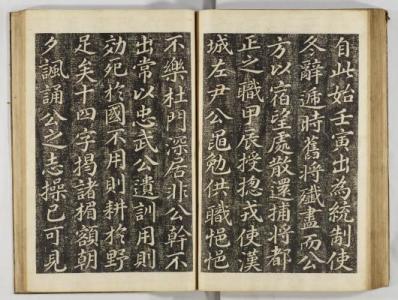 自此始壬寅出為統制使
冬辭遞時舊將殲盡而公
方以宿望處散還捕將都
正之職甲辰授捴戎使漢
城左尹公黽勉供職悒悒
不樂杜門深居非公幹不
出常以忠武公遺訓用則
効死於國不用則耕於野
足矣十四字揭諸楣額朝
夕諷誦公之志操已可見